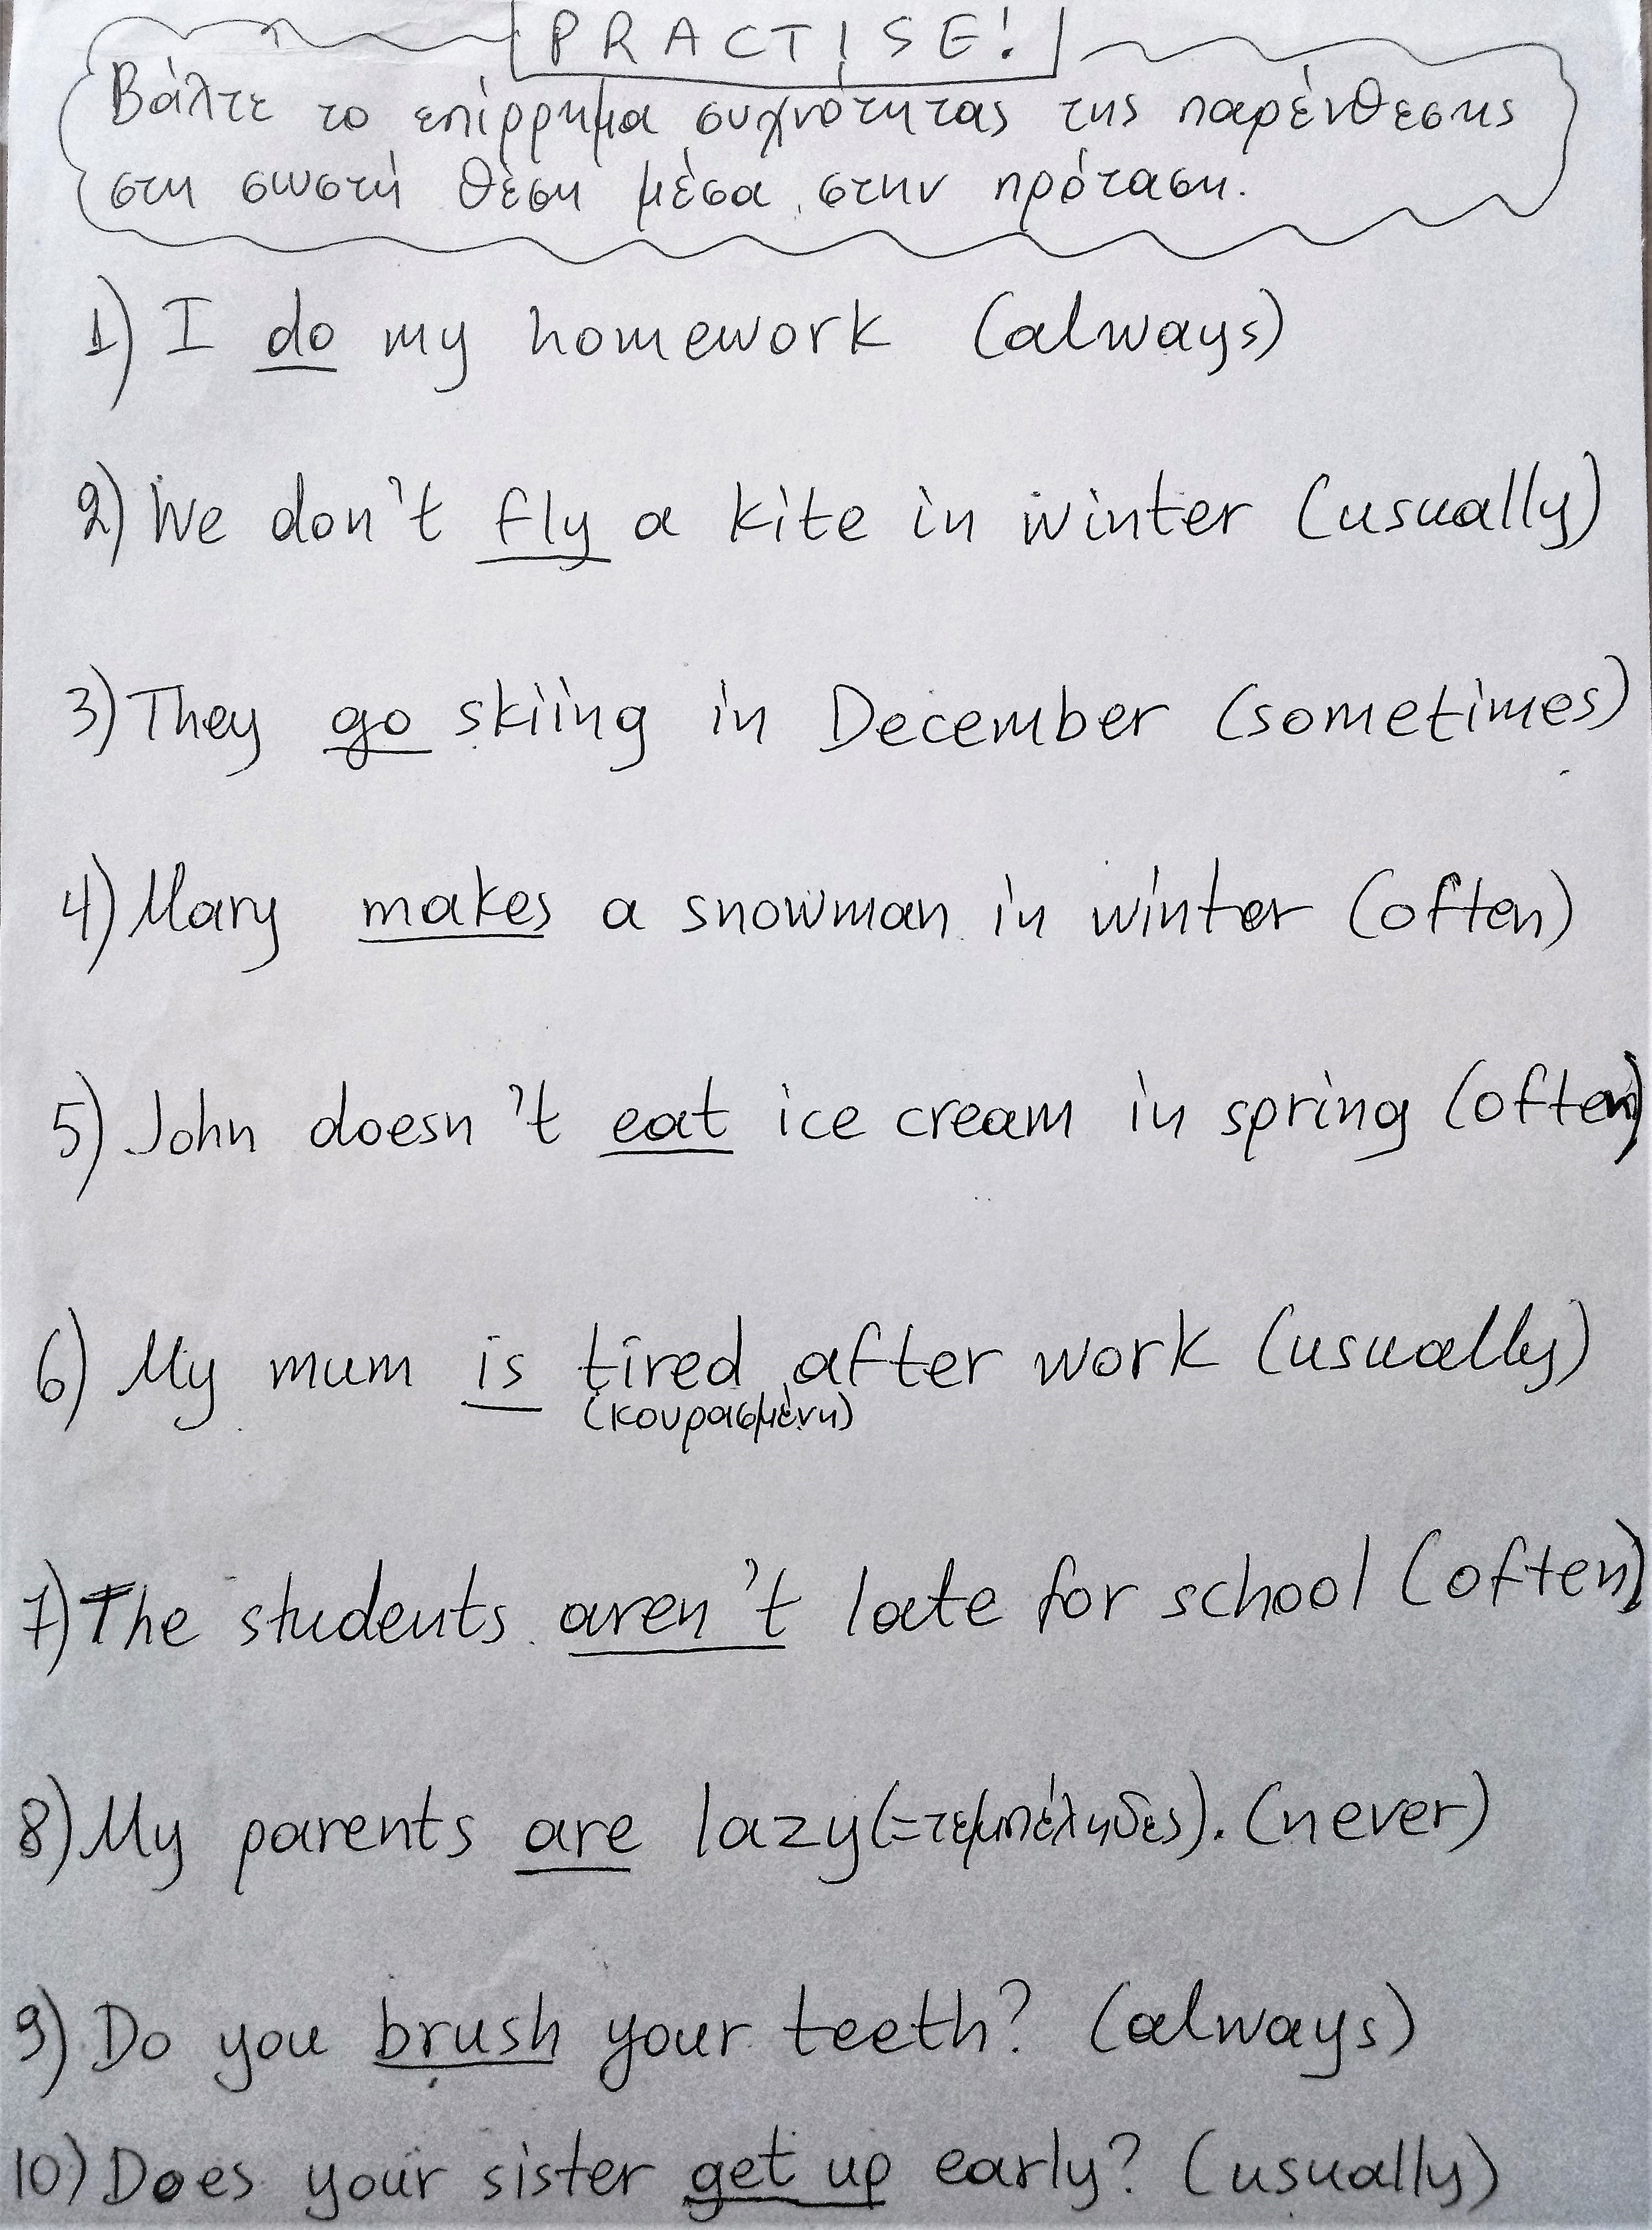 PRACTISE!
Βάλτε το επίρρημα συχνότητας της παρένθεσης
στη σωστή θέση μέσα στην πρόταση.
1) I do my homework (always)
2) We don't fly a kite in winter (usually)
3) They go skiing in December (sometimes)
4) Mary makes a snowman in winter (often)
5) John doesn't eat ice cream in spring (often)
6) My mum is tired after work (usually)
(κουρασμένη)
7) The students aren't late for school (often)
8) My parents are lazy (=τεμπέληδες). (never)
9) Do you brush your teeth? (always)
10) Does your sister get up early? (usually)